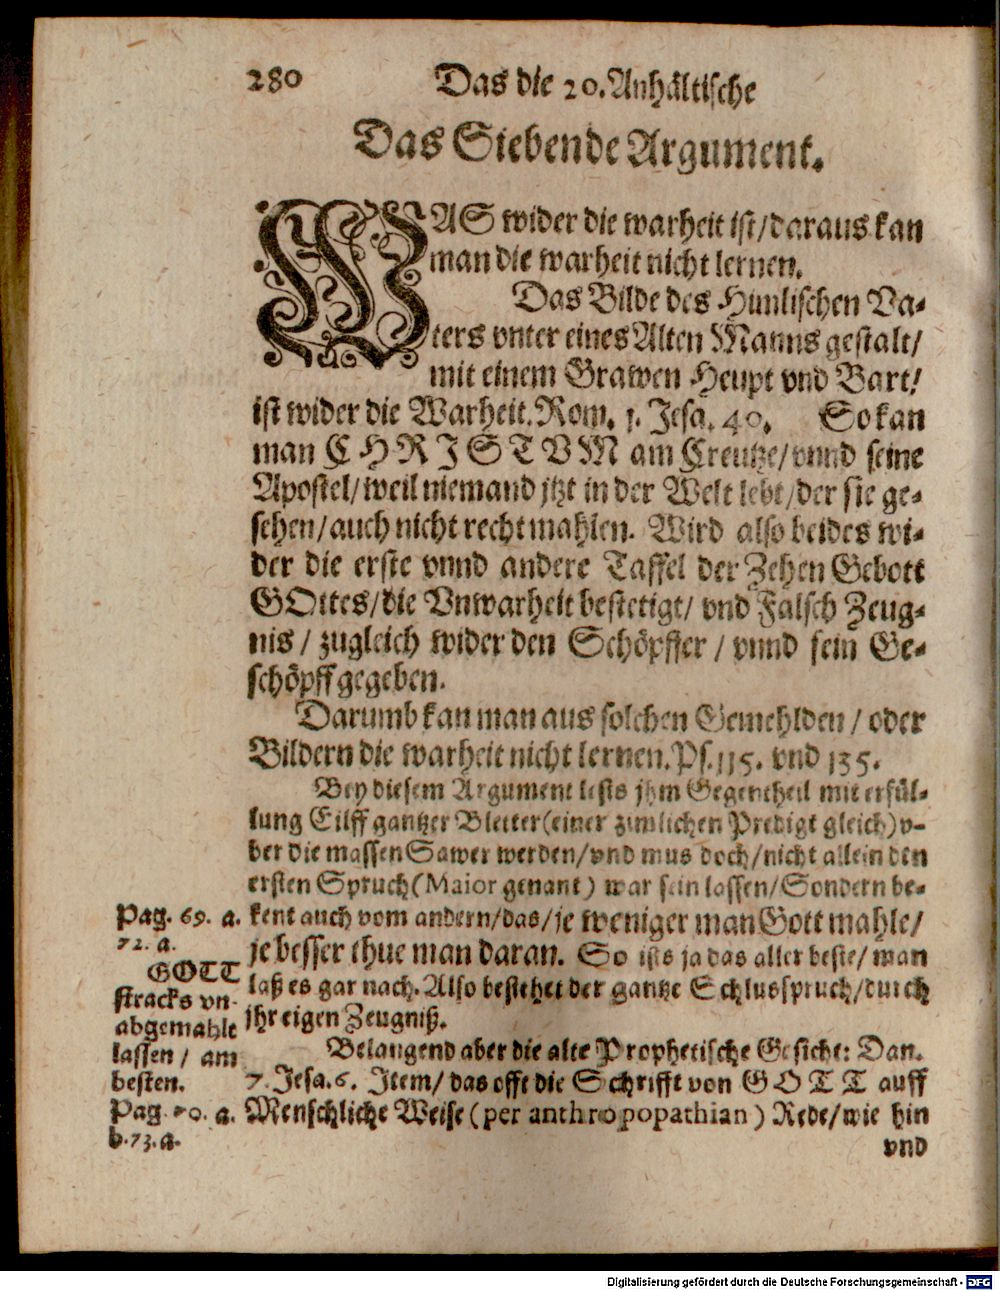 280 Das die 20. Anhältische
Das Siebende Argument.
WAS wider die warheit ist/daraus kan
man die warheit nicht lernen.
Das Bilde des Himlischen Va-
ters vnter eines Alten Manns gestalt/
mit einem Grawen Heupt vnd Bart/
ist wider die Warheit. Rom. 1. Jesa. 40. So kan
man CHRISTVM am Creutze/vnnd seine
Apostel/weil niemand jtzt in der Welt lebt/der sie ge-
sehen/auch nicht recht mahlen. Wird also beides wi-
der die erste vnnd andere Taffel der Zehen Gebott
GOttes/die Vnwarheit bestetigt/ vnd Falsch Zeug-
nis/ zugleich wider den Schöpffer/ vnnd sein Ge-
schöpff gegeben.
Darumb kan man aus solchen Gemehlden/ oder
Bildern die warheit nicht lernen. Ps. 115. vnd 135.
Bey diesem Argument lests jhm Gegentheil mit erfül-
lung Eilff gantzer Bletter(einer zimlichen Predigt gleich)v-
ber die massen Sawer werden/vnd mus doch/nicht allein den
ersten Spruch(Maior genant) war sein lassen/Sondern be-
kent auch vom andern/das/je weniger man Gott mahle/
je besser thue man daran. So ists ja das aller beste/ man
laß es gar nach. Also bestehet der gantze Schlusspruch/durch
jhr eigen Zeugniß.
Pag. 69. a.
72. a.
GOTT
stracks vn-
abgemahlt
lassen/ am
besten.
Belangend aber die alte Prophetische Gesicht: Dan.
7. Jesa. 6. Item/ das offt die Schrifft von GOTT auff
Menschliche Weise (per anthropopathian) Rede/wie hin
Pag. 70. a.
b. 73. a.
vnd
Digitalisierung gefördert durch die Deutsche Forschungsgemeinschaft - DFG